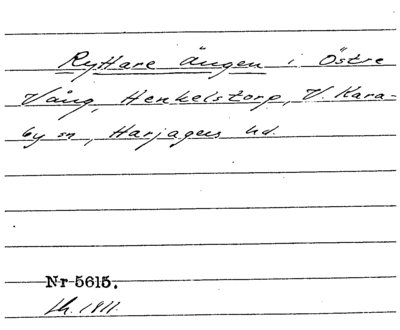 Ryttare ängen i Östre
Vång, Henkelstorp, V. Kara-
by sn, Harjagers hd.
Nr 5615.
1811.